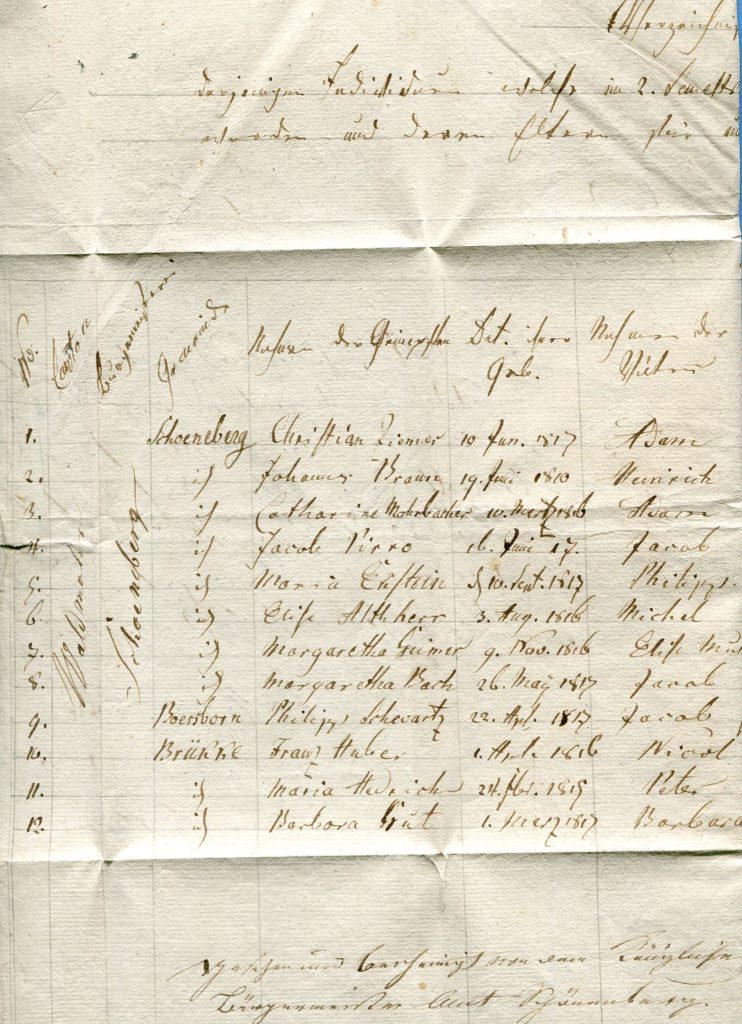 Verzeichniß
derjenigen Individuen welche im 2. Semester
worden und deren Eltern für
No. Canton Bürgermeisterei Gemeinde Nahmen der Geimpften Dat. ihrer Nahmen der
Geb. Väter
Waldmohr
Schoenberg
1. Schoeneberg Christian Ziemer 10 Jun. 1817 Adam
2. id Johannes Braun 19. Juni 1810 Heinrich
3. id Catharine Mohrbacher 10. Mertz 1816 Adam
4. id Jacob Pirro 16. Juni 17. Jacob
5. id Maria 10. Sept. 1817 Philipp
6. id Elise Altherr 3. Aug. 1816 Michel
7. id Margaretha 9. Nov. 1816 Elise
8. id Margaretha Bach 26. May 1817 Jacob
9. Boersborn Philipp Schwartz 22. Apl. 1817 Jacob
10. Brücke Franz Huber 1. 1816 Nicol
11. id Maria Hedrich 24. fbr. 1815 Peter
12. id Barbara Gut 1. Mertz 1817 Barbara
gesehen und bescheinigt von dem Königlichen
Bürgermeister Amt Schönenberg.